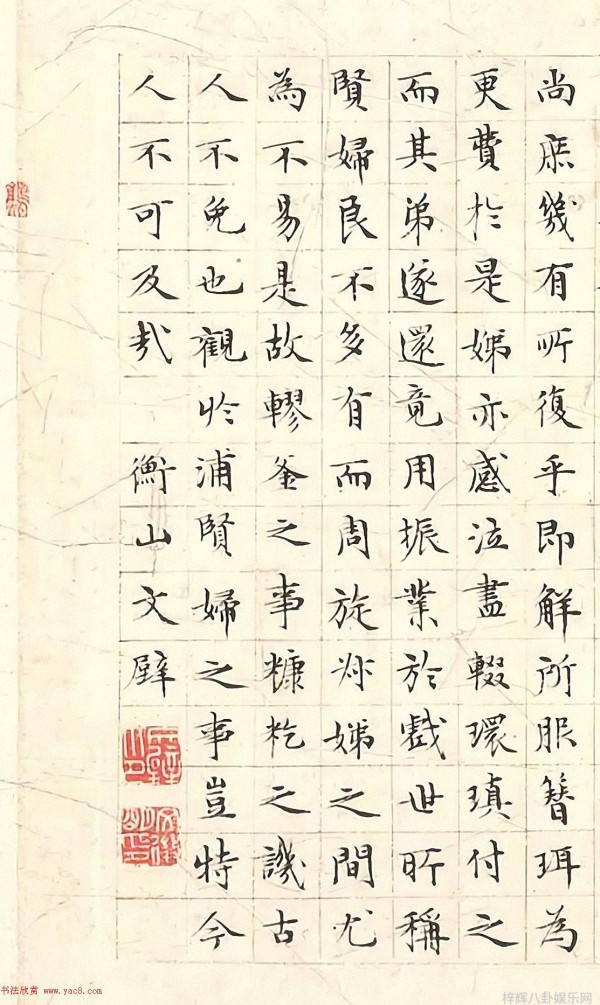 尚庶幾有所復乎即解所服簪珥為
更費於是娣亦感泣盡輟環瑱付之
而其弟遂還竟用振業於戲世所稱
賢婦良不多有而周旋姒娣之間尤
為不易是故轑釜之事糠籺之譏古
人不免也觀於浦賢婦之事豈特今
人不可及哉 衡山文壁
书法欣赏 www.yac8.com
梓辉八卦娱乐网